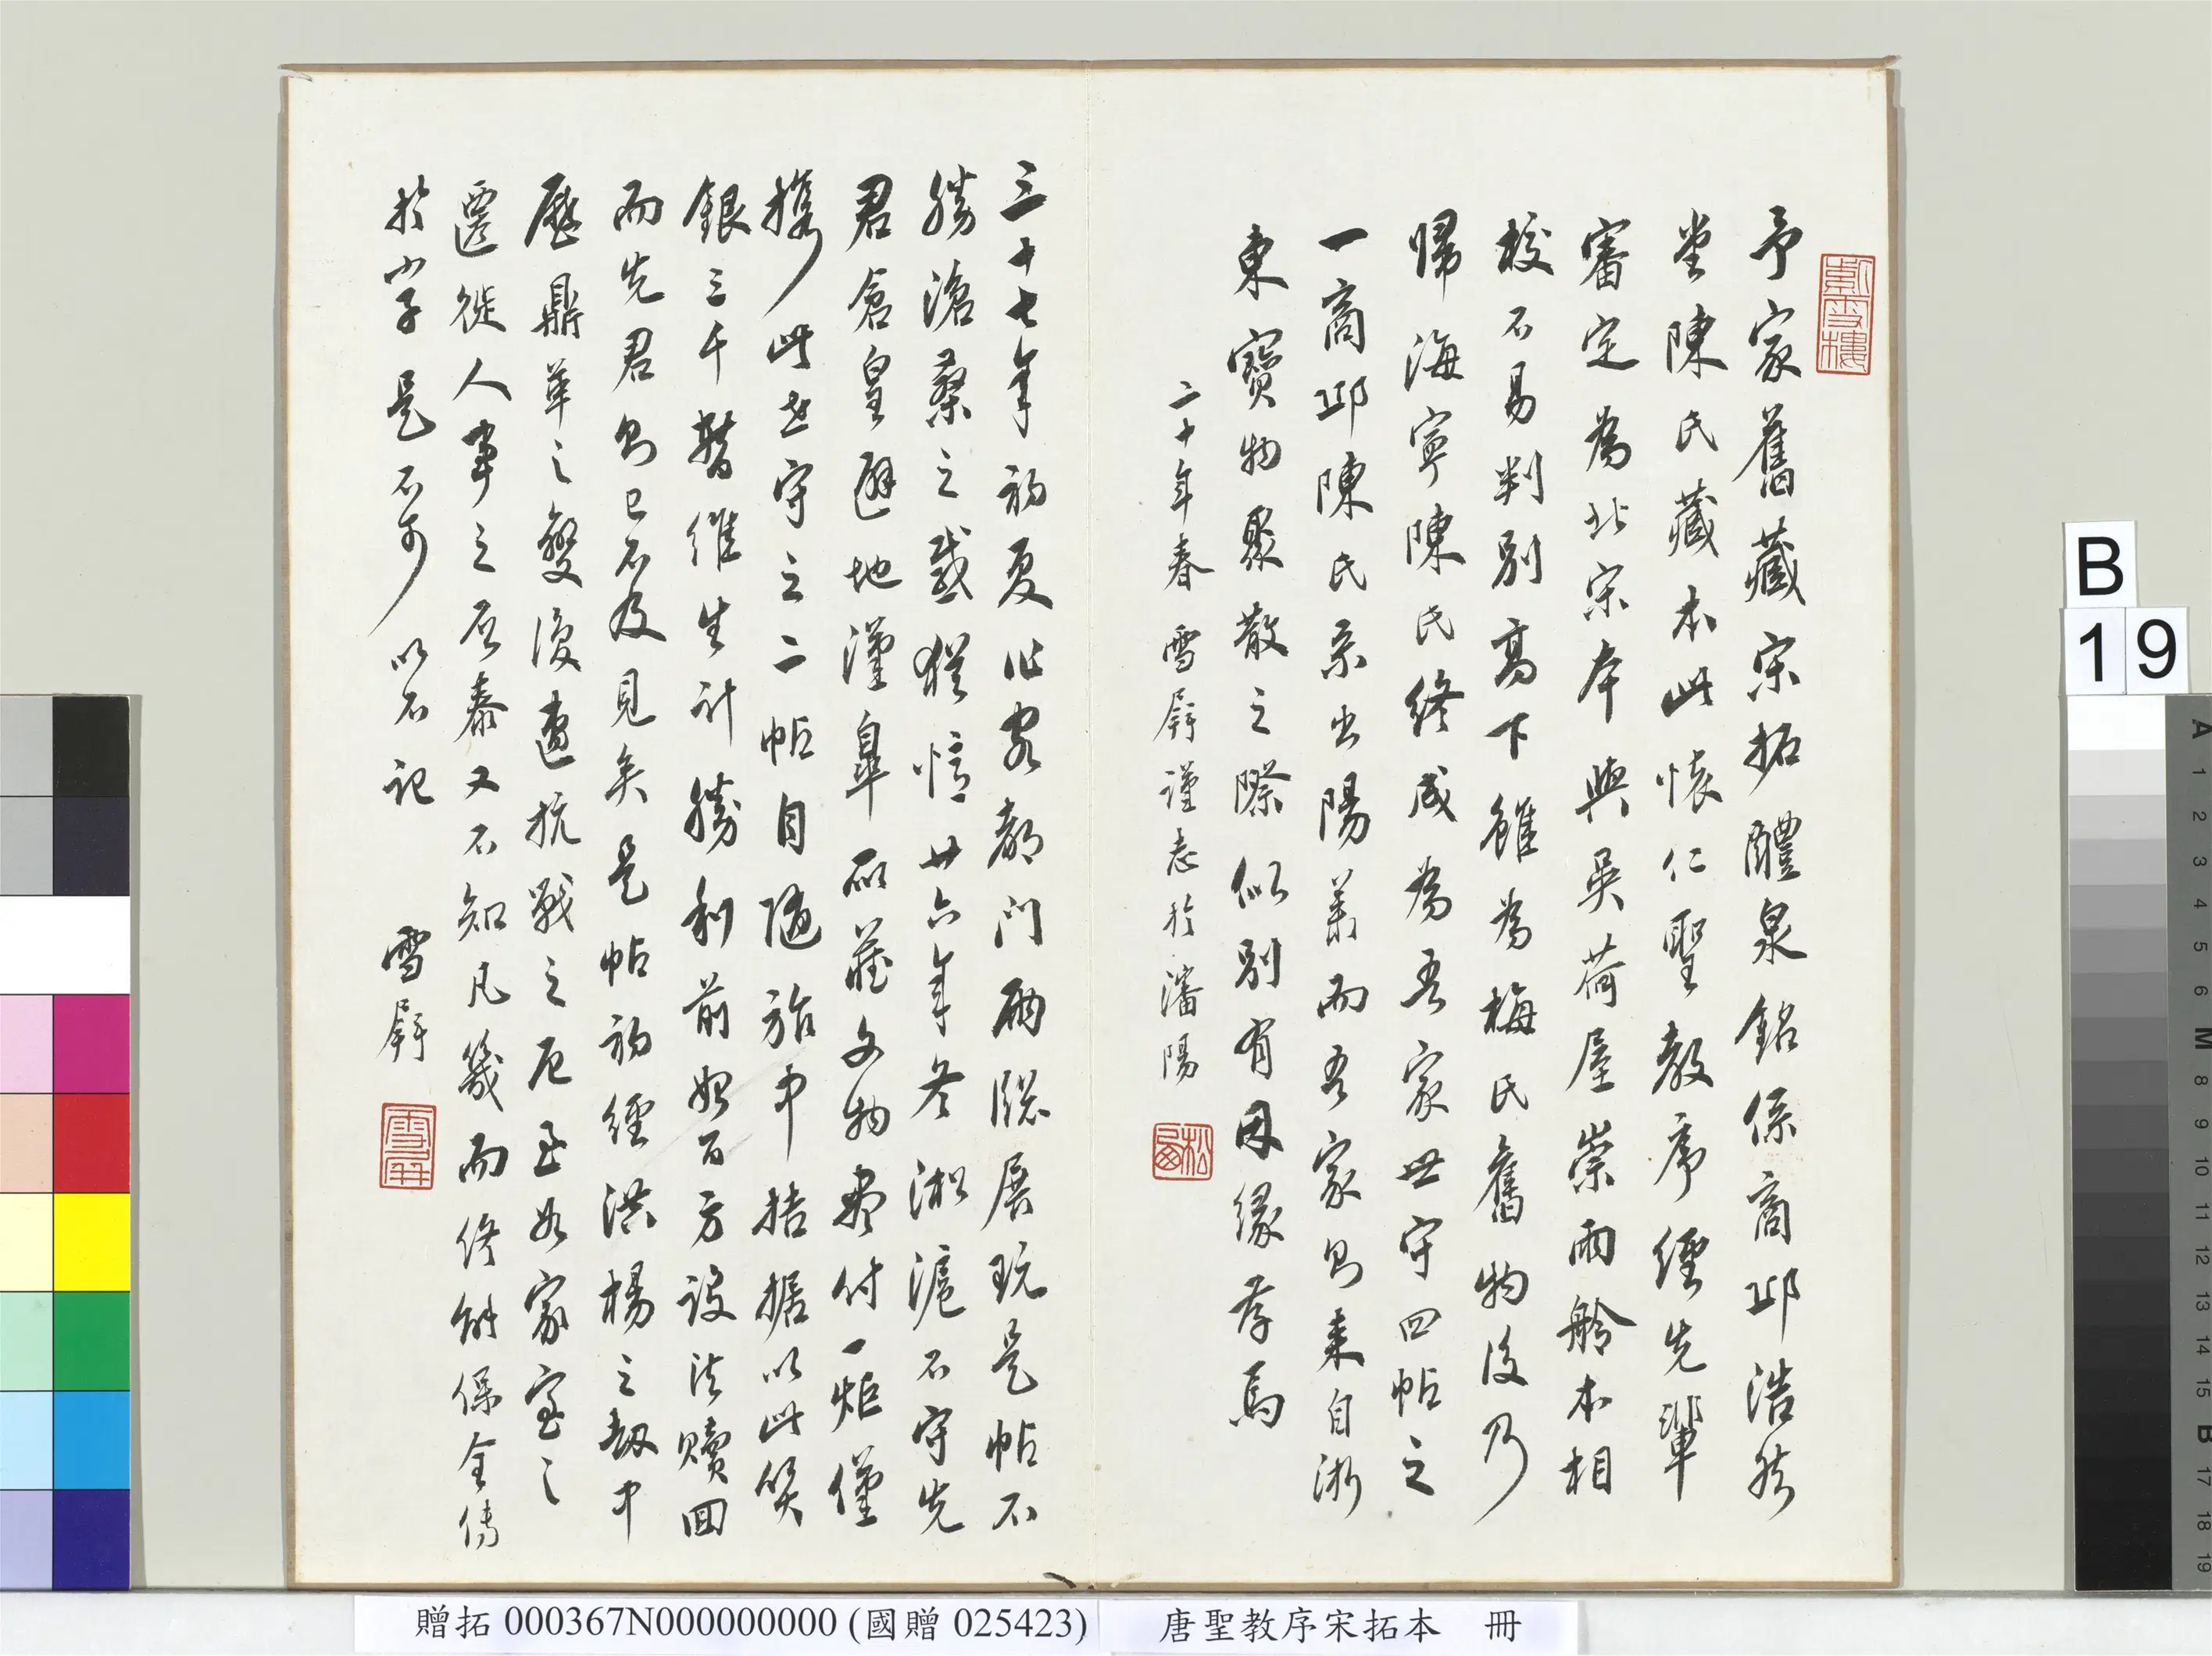 予家舊藏宋拓醴泉銘係商邱浩然
堂陳氏藏本此懷仁聖教序經先輩
審定為北宋本與吳荷屋崇雨舲本相
校不易判別高下雖為梅氏舊物後乃
歸海寧陳氏終成為吾家世守四帖之
一商邱陳氏系出陽羨而吾家則來自浙
東寶物聚散之際似別有因緣存焉
二十年春雪屏謹志於瀋陽
三十七年初夏作客都門雨牕展玩是帖不
勝滄桑之感猶憶廿六年冬淞滬不守先
君倉皇避地漢皐所藏文物盡付一炬僅
攜此世守之二帖自隨旅中拮据以此質
銀三千暫維生計勝利前始百方設法贖回
而先君則已不及見矣是帖初經洪楊之劫中
歷鼎革之變復遭抗戰之厄至如家室之
遷徙人事之否泰又不知凡幾而終能保全傳
於小子是不可以不記
雪屏
雪屏
B
19
贈拓 000367N000000000 (國贈 025423)
唐聖教序宋拓本 冊
A 1 2 3 4 5 6 M 8 9 10 11 12 13 14 15 B 17 18 19